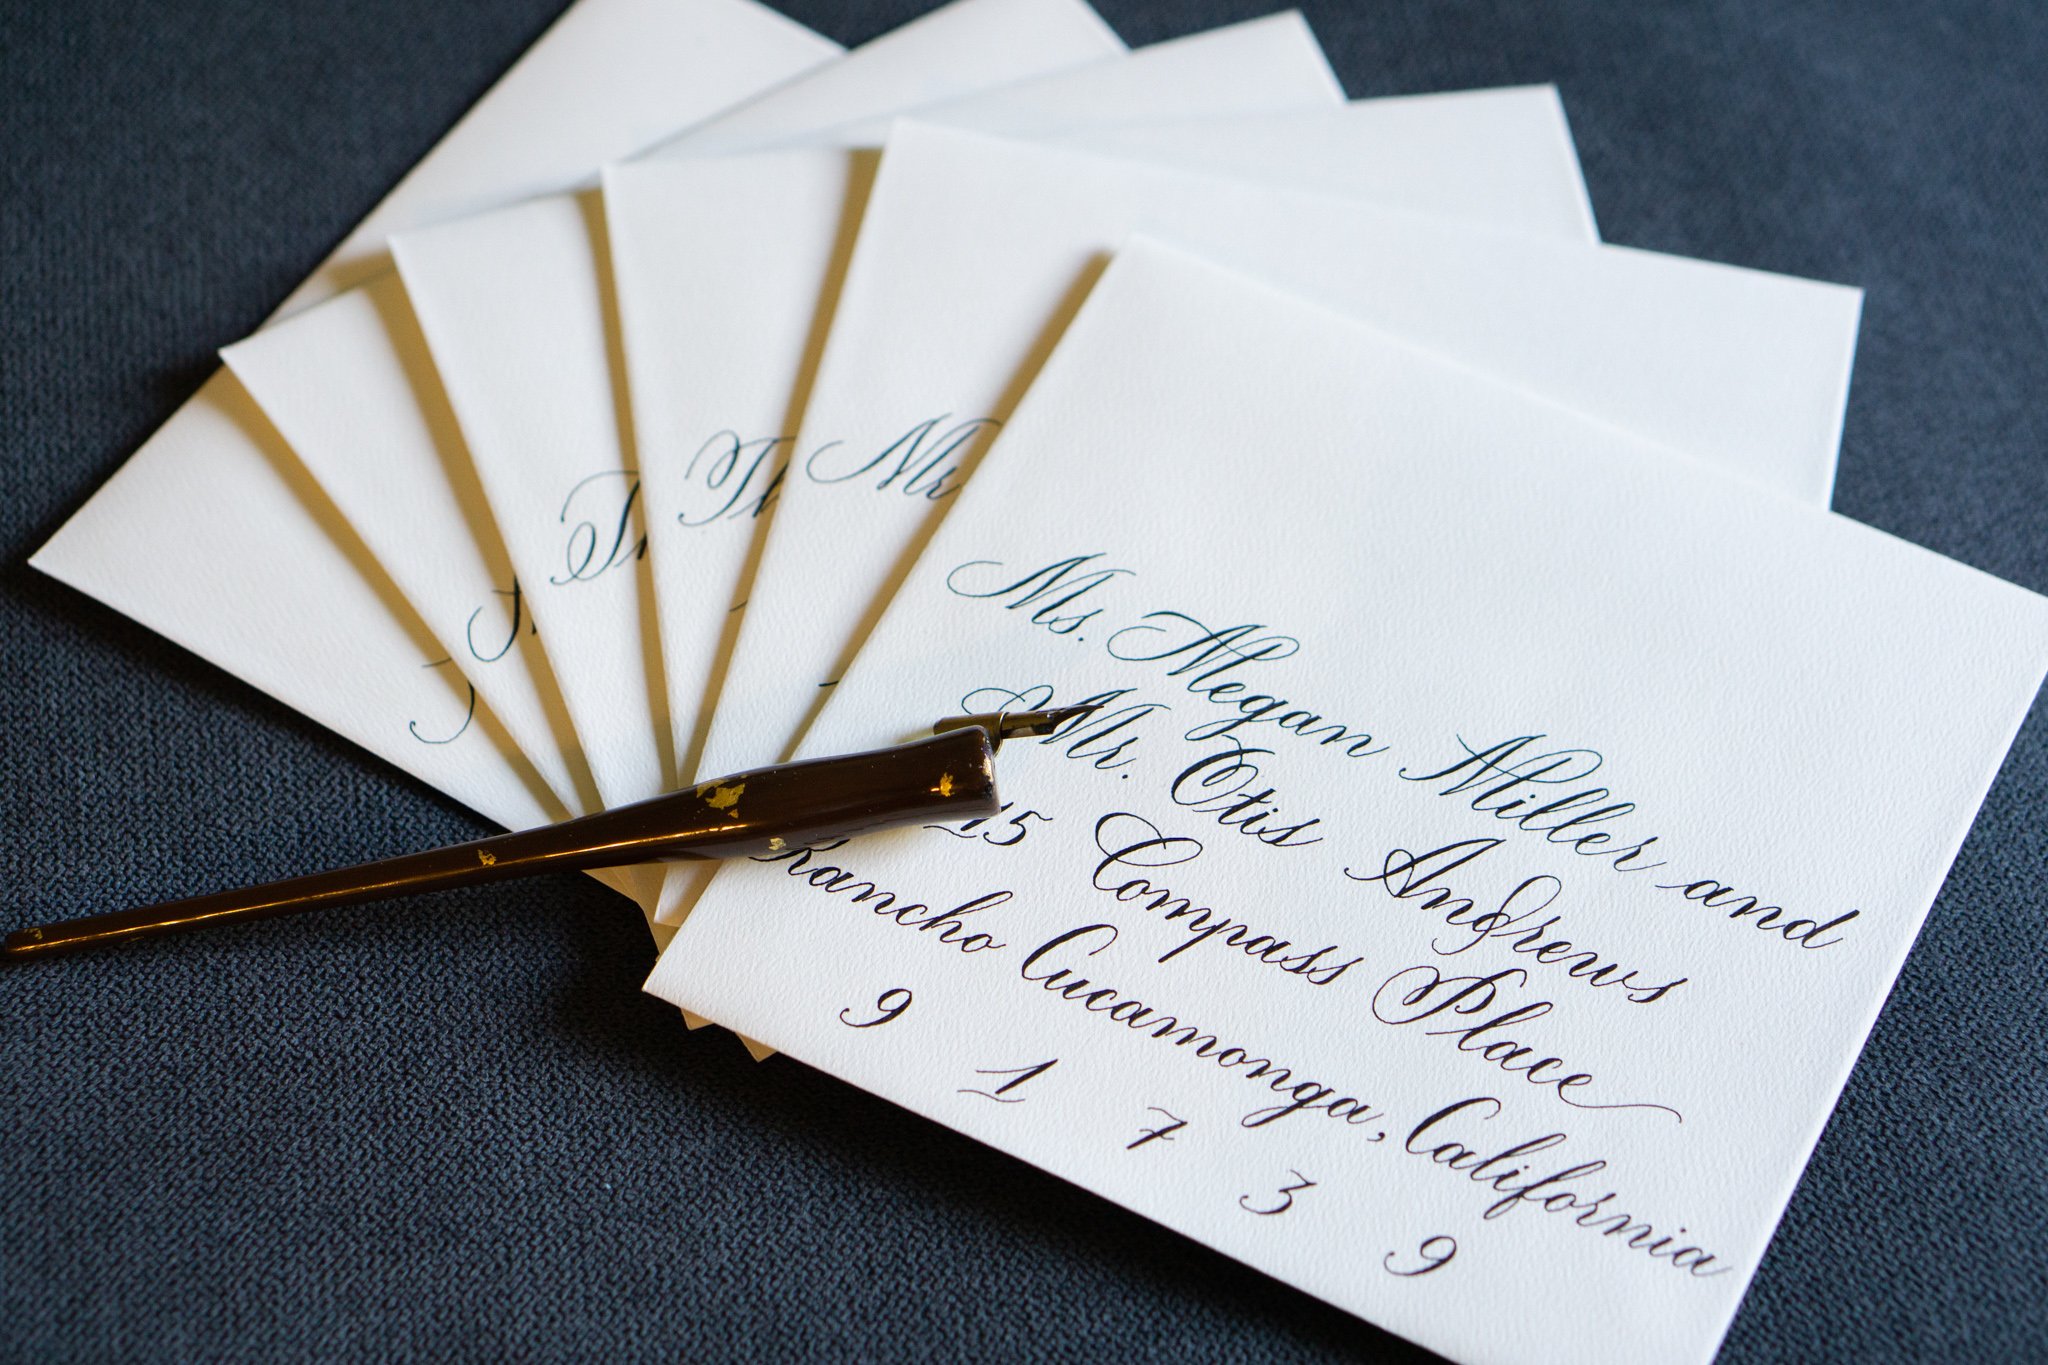 Mr
Ms. Megan Miller and
Mr. Otis Andrews
Compass Place
Rancho Cucamonga, California
9 1 7 3 9